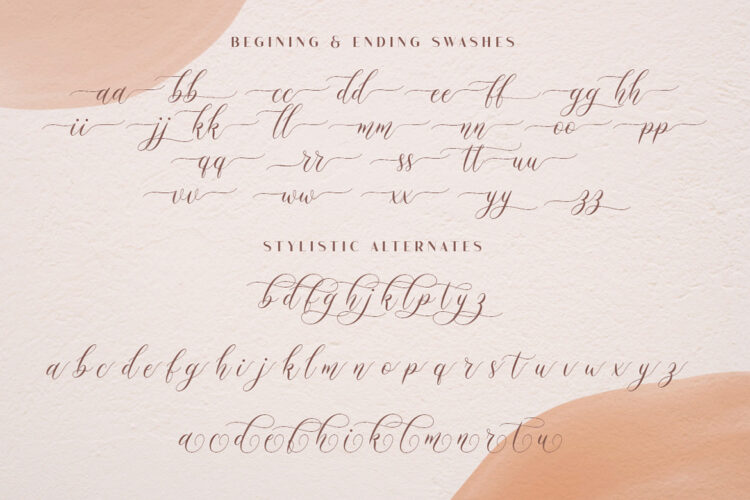 BEGINING & ENDING SWASHES
aa bb cc dd ee ff gg hh
ii jj kk ll mm nn oo pp
qq rr ss tt uu
vv ww xx yy zz
STYLISTIC ALTERNATES
bdfghjklptyz
a b c d e f g h i j k l m n o p q r s t u v w x y z
acdefhiklmnrtu